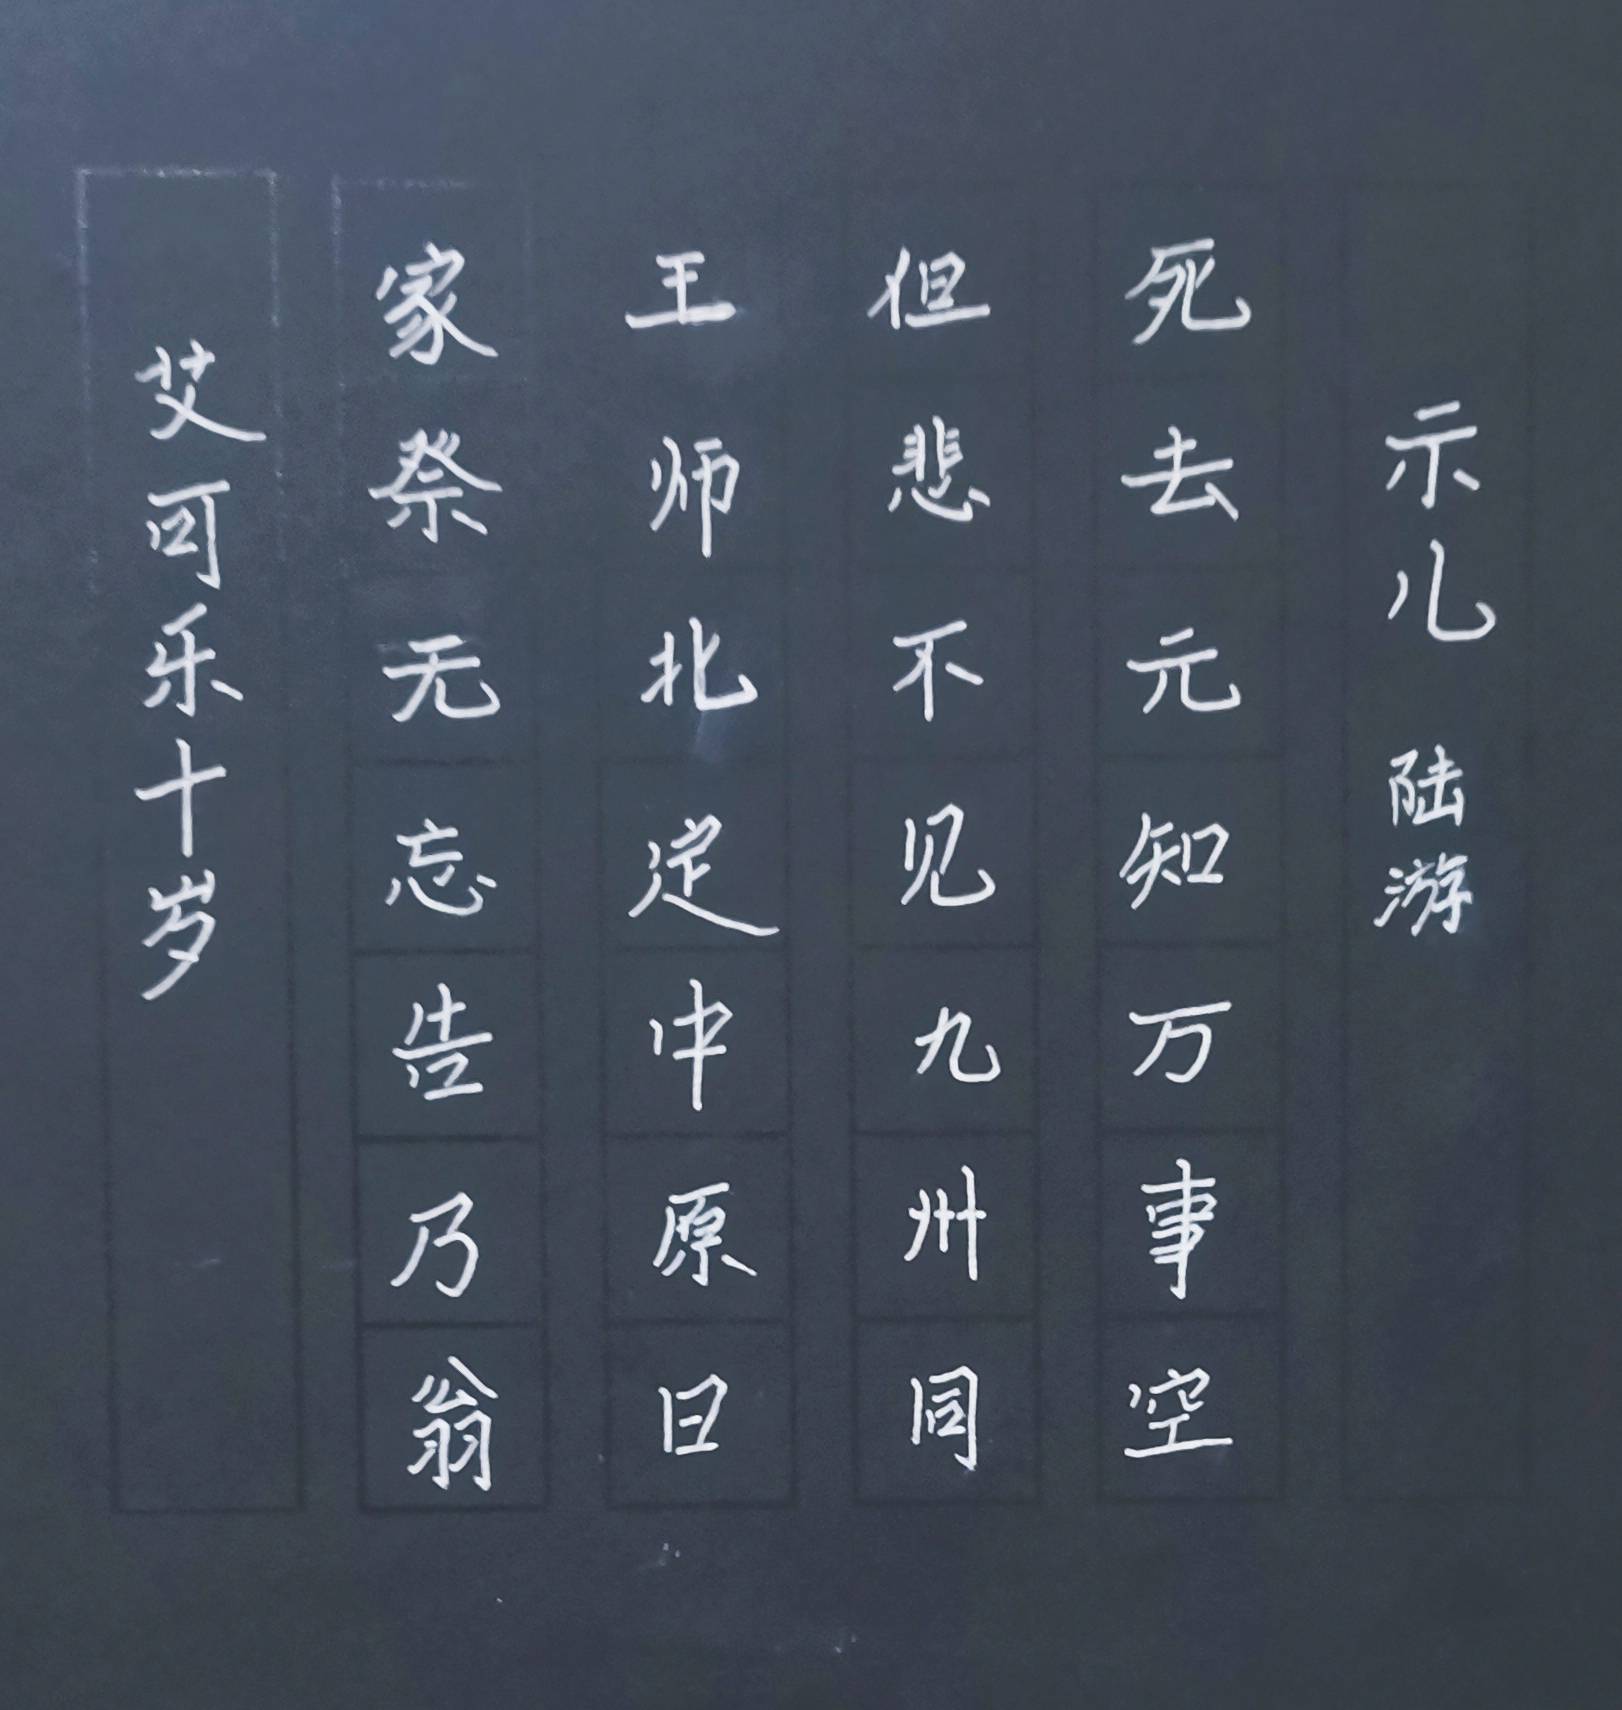 示儿 陆游
死去元知万事空
但悲不见九州同
王师北定中原日
家祭无忘告乃翁
艾可乐十岁